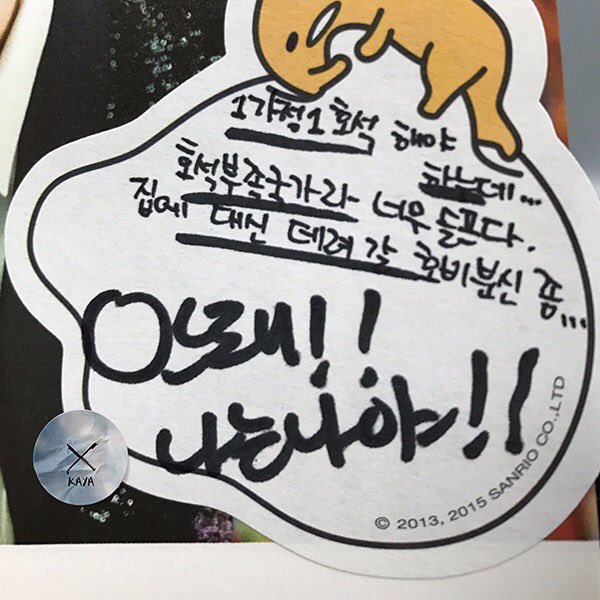 1가정1호석 해야
하는데...
호석부족국가라 너무 슬프다.
집에 대신 데려갈 호비분신 좀...
안돼!!
나는나야!!
© 2013, 2015 SANRIO CO.,LTD
KAYA